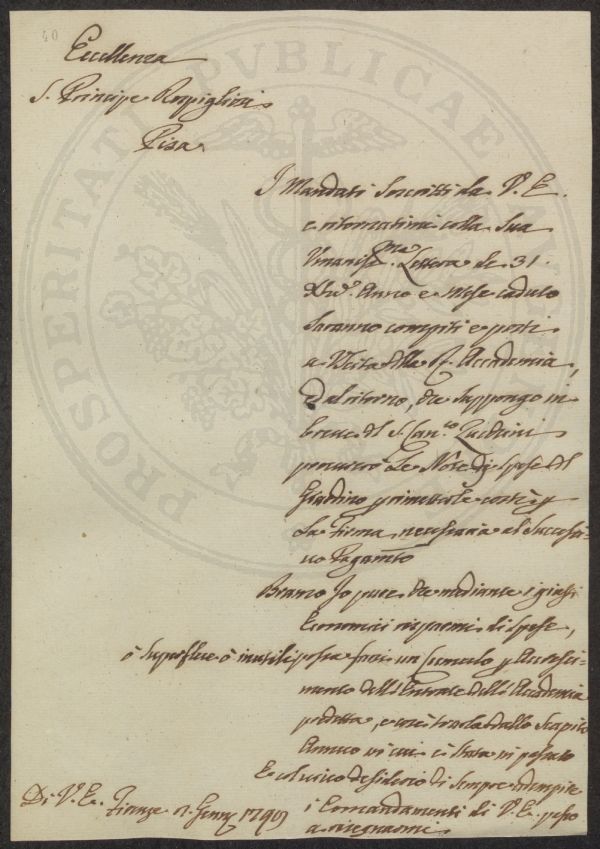 40
Eccellenza
S. Principe Rospigliosi
Pisa
I Mandati Soscritti da V. E.
e ritornatimi colla Sua
Umaniss.ma Lettera de 31.
Xbre. Anno e Mese caduto
saranno compiti e posti
a Vista della R. Accademia,
e dal ritorno, che suppongo in
breve del S. Can.co Zucchini
procurerò le Note di spese del
Giardino p rimetterle costì p
la Firma necessaria al Successi-
vo Pagamto
Bramo Io pure che mediante i giusti
Economici risparmi di spese,
ò superflue ò inutili possa farsi un cumulo p Accresci-
mento dell'Entrate dell'Accademia
predetta, e cosi toglierla dallo Scapito
Annuo in cui è stata in passato
E col vivo desiderio di sempre adempire
i Comandamenti di V. E. passo
a rassegnarmi
Di V. E. Firenze Genn. 1790
PROSPERITATI PVBLICAE